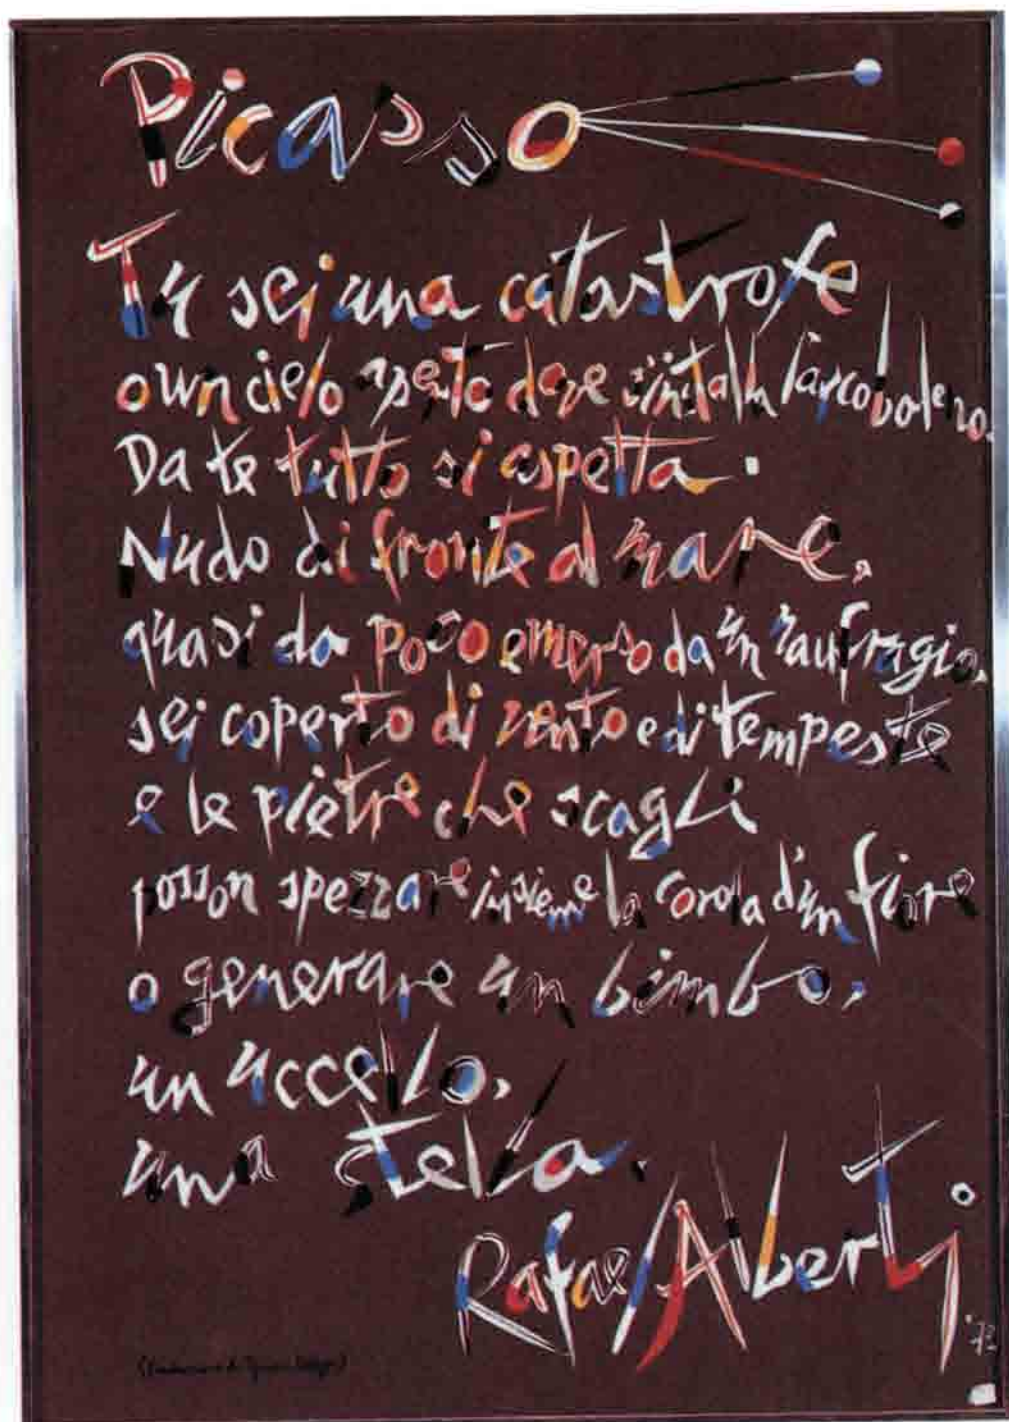 Picasso
Tu sei una catastrofe
o un cielo aperto dove s'installa l'arcobaleno.
Da te tutto si aspetta.
Nudo di fronte al mare,
quasi da poco emerso da un naufragio,
sei coperto di vento e di tempeste
e le pietre che scagli
posson spezzare insieme la corolla d'un fiore
o generare un bimbo,
un uccello,
una stella.
Rafael Alberti
'72